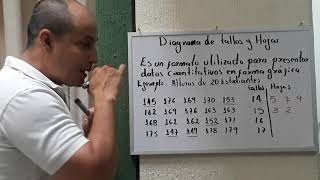 Diagrama de tallos y Hojas
Es un formato utilizado para presentar
datos cuantitativos en forma gráfica.
Ejemplo: Alturas de 20 Estudiantes
tallos Hojas
145 176 169 170 153 14 5 7 9
162 169 176 163 163 15 3 2
168 162 162 152 171 16
175 147 149 178 179 17